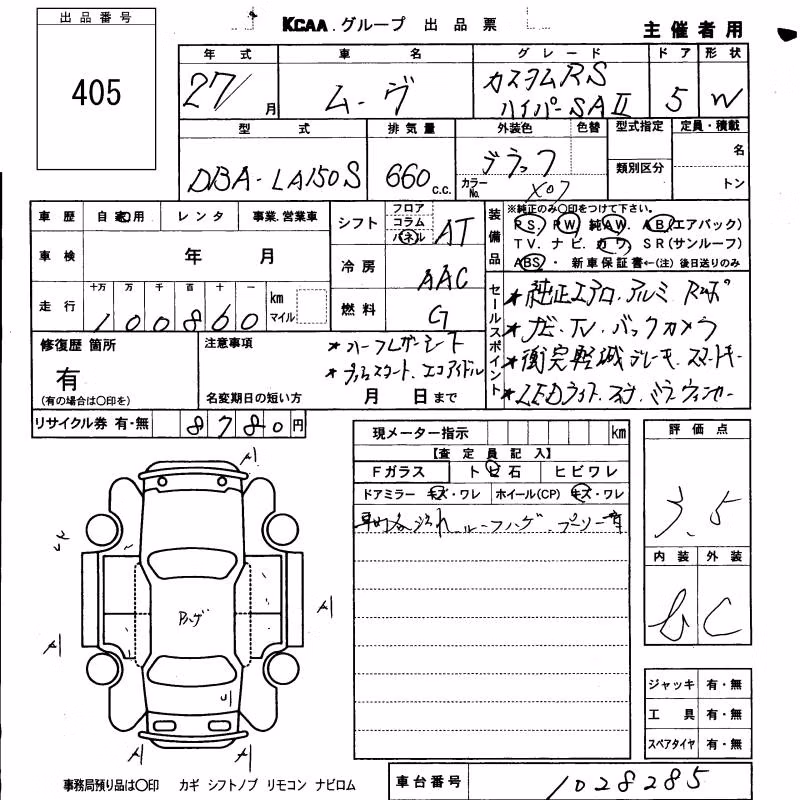 出品番号
405
KCAA.グループ 出品票
主催者用
年式 車名 グレード ドア 形状
27/ 月 ムーヴ カスタムRS
ハイパーSAⅡ 5 W
型式 排気量 外装色 色替 型式指定 定員・積載
DBA-LA150S 660 c.c. ブラック
カラーNo. X07
類別区分 名
トン
車歴 自家用 レンタ 事業.営業車
車検 年 月
走行 十万 万 千 百 十 一
100860 km マイル
シフト フロア コラム パネル AT
冷房 AAC
燃料 G
装備品
※純正のみ〇印をつけて下さい。
P S. P W 純 A W. A B.(エアバック)
T V. ナ ビ. カ ワ. S R(サンルーフ)
A B S・ 新車保証書←(注)後日送りのみ
セールスポイント
★純正エアロ.アルミ
★ナビ.TV.バックカメラ
★衝突軽減ブレーキ.スマートキー
★LEDライト.
修復歴 箇所
有
(有の場合は〇印を)
注意事項
★ハーフレザーシート
★プッシュスタート.エコアイドル
名変期日の短い方 月 日まで
リサイクル券 有・無 8780円
現メーター指示 km
【査定員記入】
Fガラス トビ石 ヒビワレ
ドアミラー キズ・ワレ ホイール(CP) キズ・ワレ
ルーフハゲ
評価点
3.5
内装 外装
6 C
A
A
A
Aハゲ
A
A
ジャッキ 有・無
工具 有・無
スペアタイヤ 有・無
事務局預り品は〇印 カギ シフトノブ リモコン ナビロム
車台番号 1028285